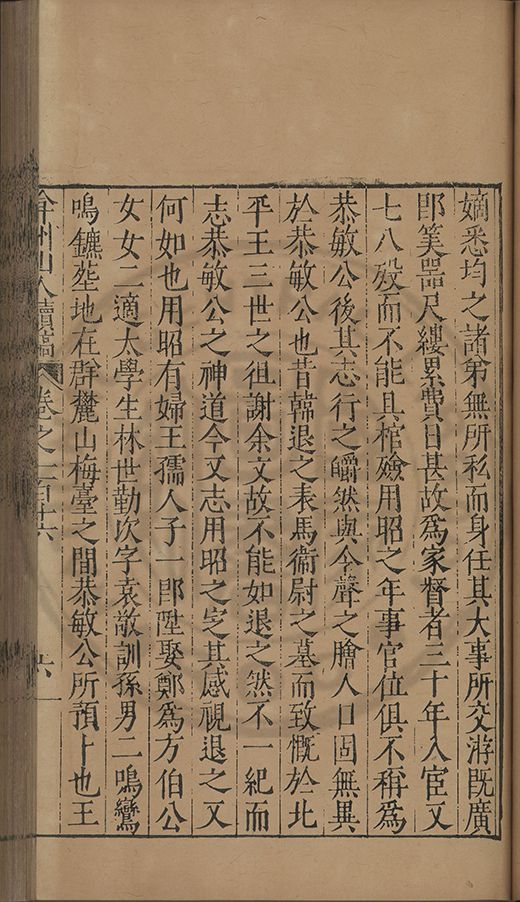 嫡悉均之諸弟無所私而身任其大事所交游既廣
即箕器尺縷累費日甚故爲家督者三十年入宦又
七八殹而不能具棺殮用昭之年事官位俱不稱爲
恭敏公後其志行之皭然與令聲之膾人口固無異
於恭敏公也昔韓退之表馬衞尉之墓而致慨於北
平王三世之徂謝余文故不能如退之然不一紀而
志恭敏公之神道今又志用昭之窆其感視退之又
何如也用昭有婦王孺人子一即陞娶鄭爲方伯公
女女二適太學生林世勤次字袁敬訓孫男二鳴鸞
鳴鑣塟地在群麓山梅臺之間恭敏公所預卜也王
弇州山人續稿 卷之一百十六 六